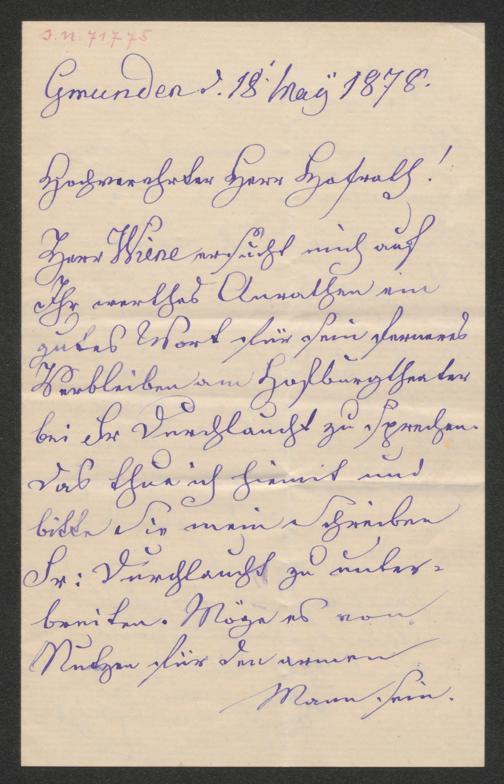 J.N. 71775
Gmunden d. 18 May 1878.
Hochverehrter Herr Hofrath!
Herr Wiene ersucht mich auf
Ihr werthes Anrathen ein
gutes Wort für sein ferneres
Verbleiben am Hofburgtheater
bei Sr Durchlaucht zu sprechen.
Das thue ich hiemit und
bitte Sie mein Schreiben
Sr: Durchlaucht zu unter=
breiten. Möge es von
Nutzen für den armen
Mann sein.